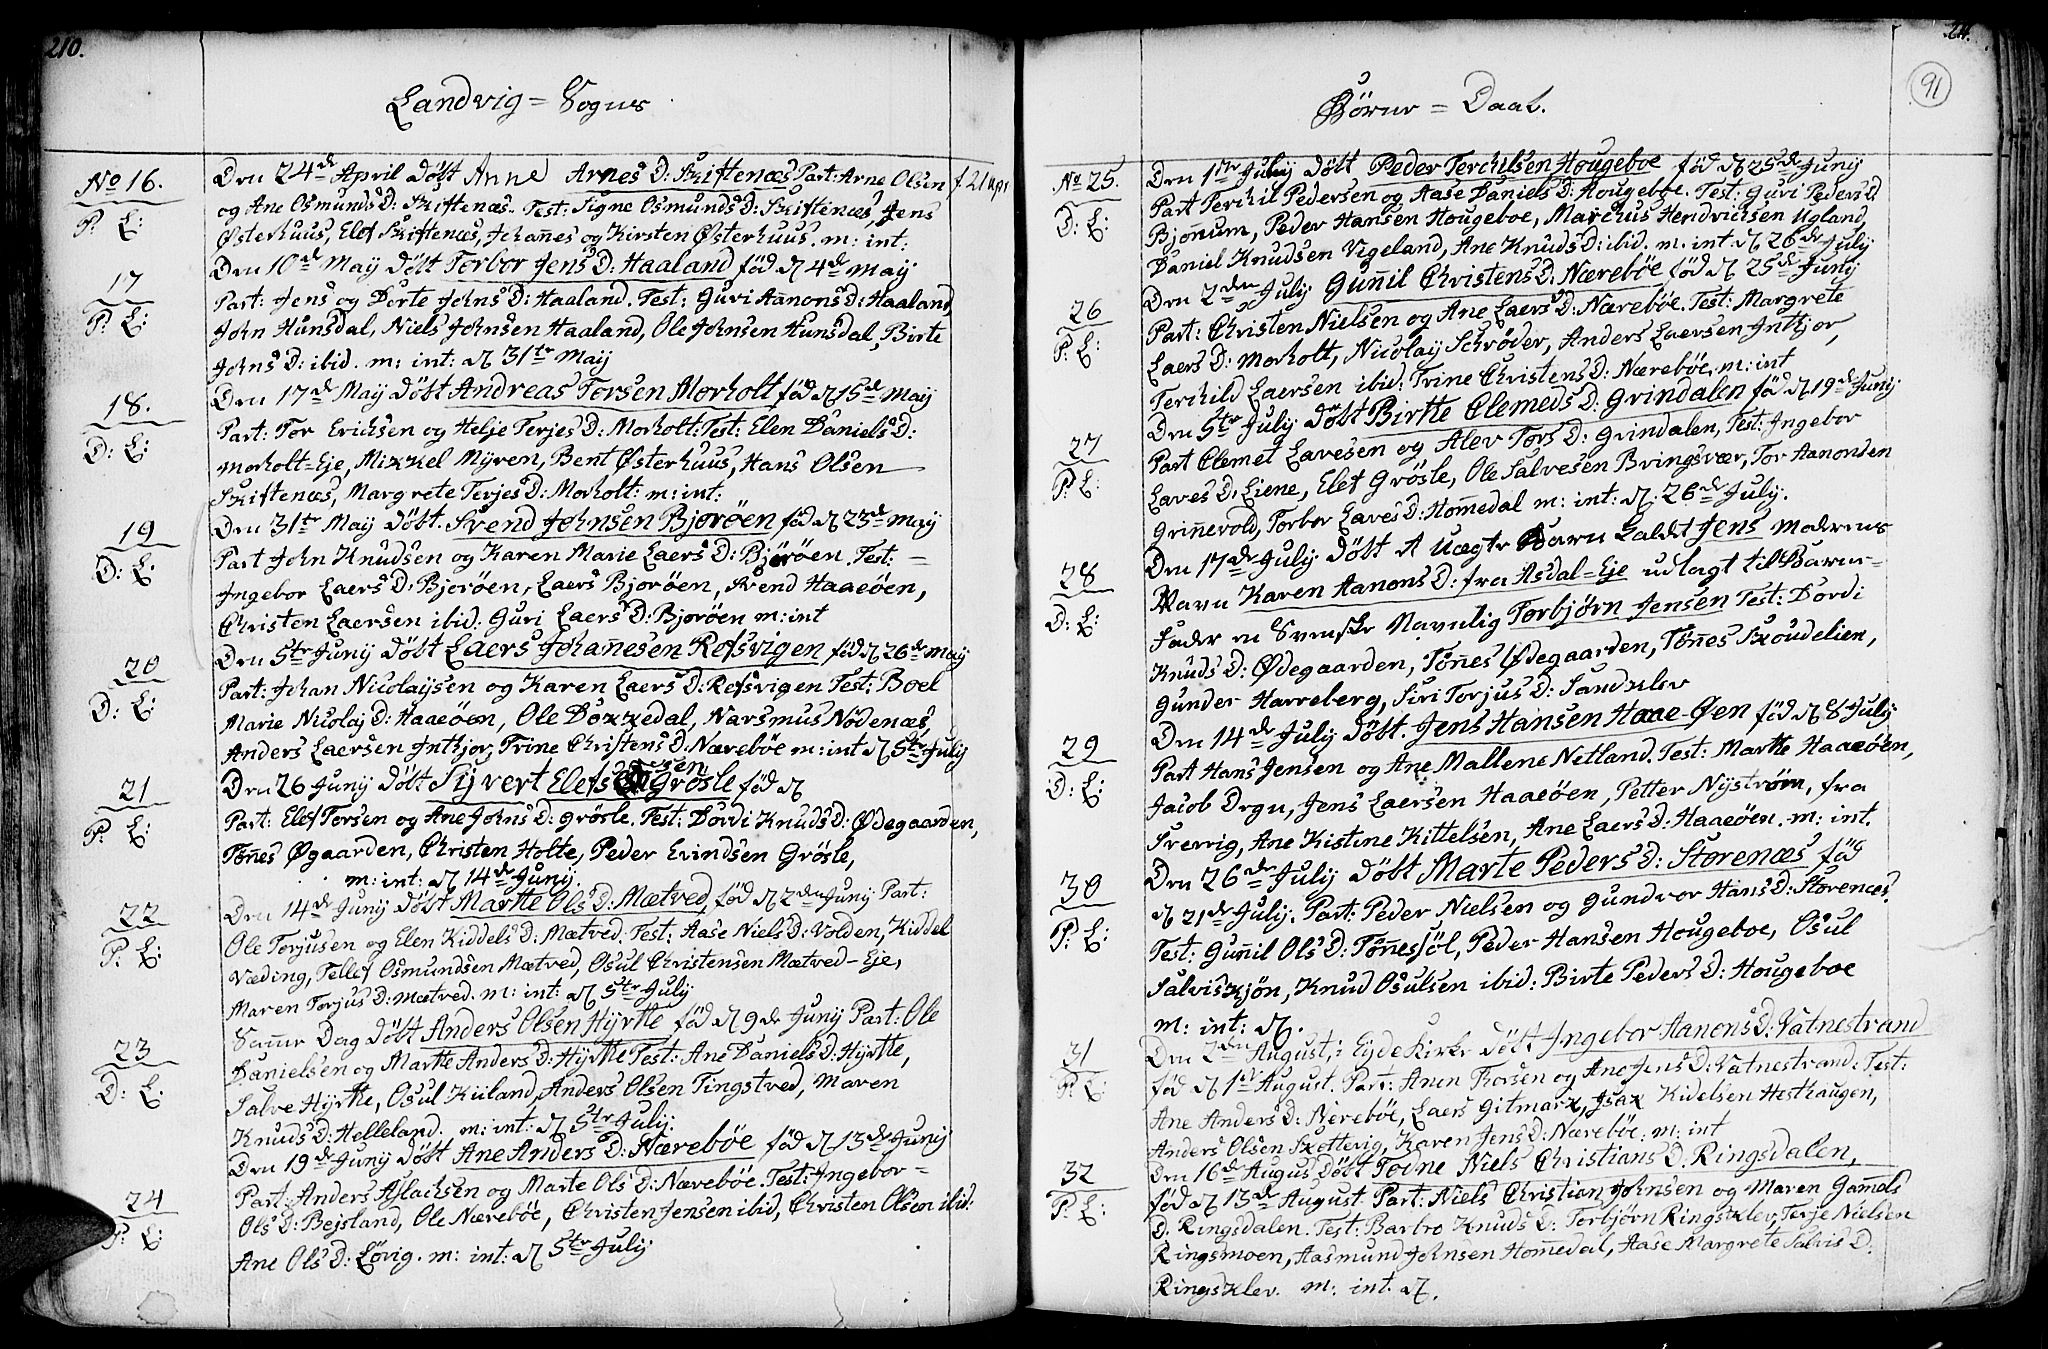 210.
Landvig = Sogns
No 16.
P: L:
Den 24de April döbt Anne Arnes D: Skiftenæs Part: Arne Olsen f. 21 apr
og Ane Osmunds D: Skiftenæs. Test: Signe Osmunds D: Skiftenæs, Jens
Østerhuus, Elef Skiftenæs, Johan̄es og Kirsten Østerhuus. m: int:
17
P: L:
Den 10de Maÿ döbt Torbor Jens D: Haaland fød d 4de Maÿ
Part: Jens og Dorte Johns D: Haaland. Test: Guri Aanons D: Haaland,
John Hunsdal, Niels Johnsen Haaland, Ole Johnsen Hunsdal, Birte
Johns D: ibid. m: int: d 31te Maÿ
18.
D: L:
Den 17de Maÿ döbt Andreas Torsen Morholt fød d 15de Maÿ
Part: Tor Erichsen og Helje Terjes D: Morholt: Test: Elen Daniels D:
Morholt-Eje, Mikkel Mÿren, Bent Østerhuus, Hans Olsen
Skiftenæs, Margrete Terjes D: Morholt: m: int:
19
D: L:
Den 31te Maÿ döbt. Svend Johnsen Bjorøen fød d 23de Maÿ
Part John Knudsen og Karen Marie Laers D: Bjørøen. Test: =
Ingebor Laers D: Bjorøen, Laers Bjorøen, Svend Haaeøen,
Christen Laersen ibid: Guri Laers D: Bjorøen m: int
20
D: L:
Den 5te Junÿ döbt Laers Johan̄esen Refsvigen fød d 26de Maÿ
Part: Johan Nicolaÿsen og Karen Laers D: Refsvigen Test: Boel
Marie Nicolaj D: Haaeøen, Ole Dokkedal, Narsmus Nødenæs,
Anders Laersen Inthjor, Trine Christens D: Nærebøe m: int d 5te Julÿ
21
P: L:
Den 26 Junÿ döbt Sÿvert Elefssen Grösle fød d
Part: Elef Torsen og Ane Johns D: Grösle. Test: Dordi Knuds D: Ødegaarden,
Tön̄es Øgaarden, Christen Holte, Peder Evindsen Grösle,
m: int: d 14de Junÿ
22
P: L:
Den 14de Junÿ döbt Marthe Ols D: Mætved, fød d 2den Junÿ Part:
Ole Torjusen og Elen Kiddels D: Mætved. Test: Aase Niels D: Volden, Kiddel
Væding, Tellef Osmundsen Mætved, Osul Christensen Mætved-Eje,
Maren Torjus D: Mætved. m: int: d 5te Julÿ
23
D: L:
Sam̄e Dag döbt Anders Olsen Hÿrthe fød d 9de Junÿ Part: Ole
Danielsen og Marthe Anders D: Hÿrthe Test: Ane Daniels D: Hÿrthe,
Salve Hÿrthe, Osul Kuland, Anders Olsen Tingstved, Maren
Knuds D: Helleland. m: int: d 5te Julÿ.
24
P: L:
Den 19de Junÿ döbt Ane Anders D: Nærebøe fød d 13de Junÿ
Part: Anders Aslachsen og Marte Ols D: Nærebøe. Test: Ingebor =
Ols D: Bejsland, Ole Nærebøe, Christen Jensen ibid, Christen Olsen ibid:
Ane Ols D: Løvig. m: int: d 5te Julÿ
211.
91
Børne = Daab.
No 25.
D: L:
Den 1te Julÿ döbt Peder Terchilsen Hougeboe fød d 25de Junÿ
Part Terchil Pedersen og Aase Daniels D: Hougeboe. Test: Guri Peders D:
Bjon̄um, Peder Hansen Hougeboe, Marchus Hendrichsen Ugland,
Daniel Knudsen Vigeland, Ane Knuds D: ibid. m. int d 26de Julÿ
26
P: L:
Den 2den Julÿ Gun̄il Christens D: Nærebøe fød d 25de Junÿ
Part: Christen Nielsen og Ane Laers D: Nærebøe. Test: Margrete
Laers D: Morholt, Nicolaÿ Schrøder, Anders Laersen Inthjor,
Terchild Laersen ibid: Trine Christens D: Nærebøe. m: int
27
P: L:
Den 5te Julÿ döbt Birthe Clemeds D: Grindalen fød d 19de Junÿ
Part Clemet Lavesen og Alev Tors D: Grindalen, Test: Ingebor
Laves D: Liene, Elef Grösle, Ole Salvesen Bringsvær, Tor Aanonsen
Grin̄evold, Torbor Laves D: Hom̄edal m: int: d. 26de Julÿ.
28
D: L:
Den 17de Julÿ döbt et Uægte Barn kaldet Jens Moderens
Navn Karen Aanons D: fra Asdal-Eje udlagt til Barne-
Fader en Svenske Navnlig Torbjørn Jensen Test: Dordi
Knuds D: Ødegaarden, Tön̄es Ødegaarden, Tön̄es Skoudelien,
Gunder Harreberg, Siri Torjus D: Sandklev
29
D: L:
Den 14de Julÿ döbt. Jens Hansen Haae-Øen fød d 8 Julÿ
Part Hans Jensen og Ane Mallene Netland. Test: Marthe Haaeøen,
Jacob Degn, Jens Laersen Haaeøen, Petter Nÿstrøm, fra
Sverrig, Ane Kistine Kittelsen, Ane Laers D: Haaeøen. m: int.
30
P: L:
Den 26de Julÿ döbt Marte Peders D: Storenæs fød
d 21de Julÿ. Part: Peder Nielsen og Gundvor Hans D: Storenæs.
Test: Gun̄il Ols D: Tön̄esøl, Peder Hansen Hougeboe, Osul
Salviskjøn, Knud Osulsen ibid: Birte Peders D: Hougeboe
m: int: d.
31
P: L:
Den 2den August, i Eÿde Kirke döbt Ingebor Aanons D: Vatnestrand
fød d 1te August. Part: Anen Thorsen og Ane Jens D: Vatnestrand: Test:
Ane Anders D: Berebøe, Laers Gitmark, Isak Kidelsen Hesthaugen,
Anders Olsen Skottevig, Karen Jens D: Nærebøe: m: int
32
P: L:
Den 16de Augus döbt Todne Niels Christians D. Ringsdalen,
fød d 13de August Part: Niels Christian Johnsen og Maren Gam̄els
D. Ringsdalen. Test: Barbro Knuds D: Torbjørn Ringsklev, Terje Nielsen
Ringsmoen, Aasmund Johnsen Hom̄edal, Aase Margrete Salvis D:
Ringsklev. m: int. d.